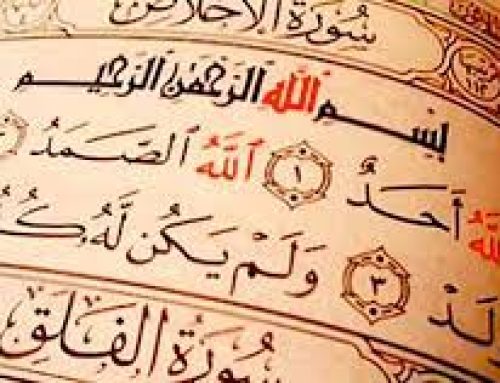 سُورَةُ الْإِخْلَاصِ
بِسْمِ ٱللَّهِ ٱلرَّحْمَٰنِ ٱلرَّحِيمِ
أَحَدٌ ١ ٱللَّهُ ٱلصَّمَدُ
٣ وَلَمْ يَكُن لَّهُۥ
سُورَةُ الْفَلَقِ